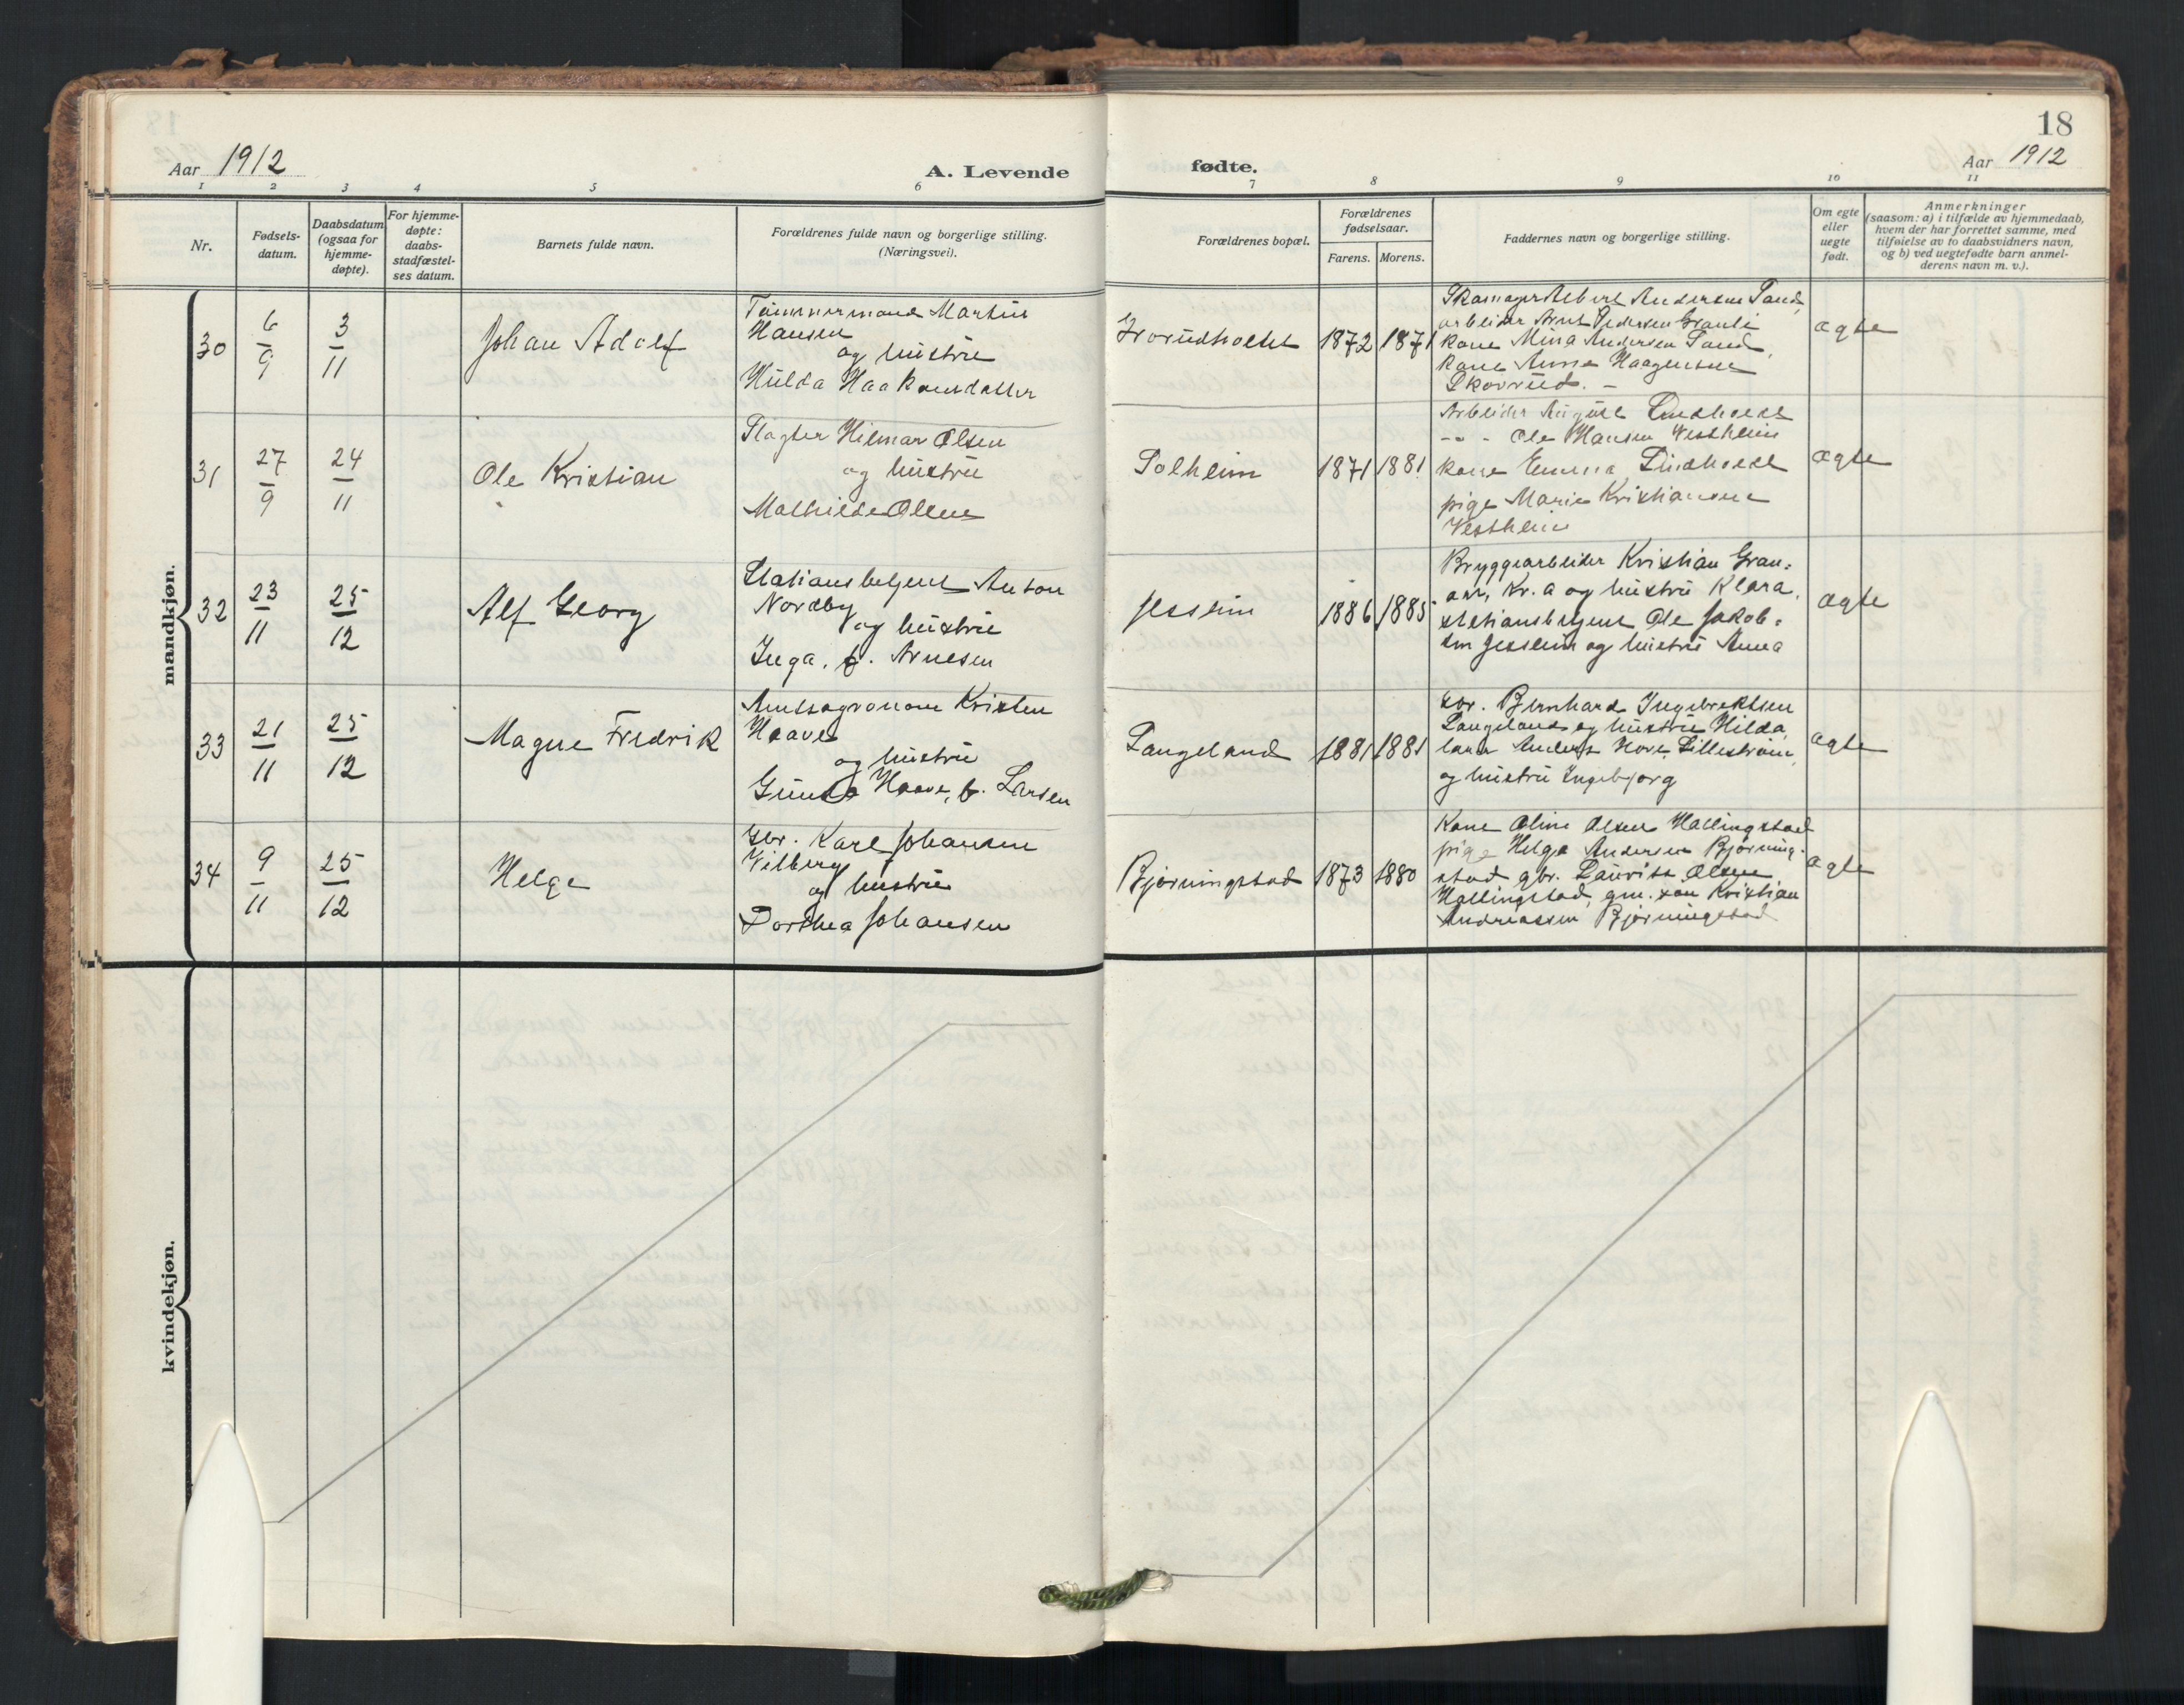 18
Aar 1912
A. Levende
fødte.
Aar 1912
1 2 3 4 5 6 7 8 9 10 11
Nr.
Fødsels-
datum.
Daabsdatum
(ogsaa for
hjemme-
døpte).
For hjemme-
døpte:
daabs-
stadfæstel-
ses datum.
Barnets fulde navn.
Forældrenes fulde navn og borgerlige stilling.
(Næringsvei).
Forældrenes bopæl.
Forældrenes
fødselsaar.
Farens. Morens.
Faddernes navn og borgerlige stilling.
Om egte
eller
uegte
født.
Anmerkninger
(saasom: a) i tilfælde av hjemmedaab,
hvem der har forrettet samme, med
tilføielse av to daabsvidners navn,
og b) ved uegtefødte barn anmel-
derens navn m. v.).
mandkjøn.
30
6/9
3/11
Johan Adolf
Tømmermand Martin
Hansen
og hustru
Hulda Haakensdatter
1872 1871
Skomager Albert Andersen Sand,
arbeider Arnt Pedersen Granli
kone Mina Andersen Sand,
kone Anne Haagensen
Skovrud. –
ægte
31
27/9
24/11
Ole Kristian
Slagter Hilmar Olsen
og hustru
Mathilde Olsen
Solheim
1871 1881
Arbeider August Lindholdt
-"- Ole Hansen Vestheim
kone Emma Lindholdt
pige Marie Kristiansen
Vestheim
ægte
32
23/11
25/12
Alf Georg
Stationsbetjent Anton
Nordby
og hustru
Inga, f. Arnesen
Jessheim
1886 1885
Bryggearbeider Kristian Gran-
aas, Kr.a og hustru Klara,
stationsbetjent Ole Jakob-
sen Jessheim og hustru Anna
ægte
33
21/11
25/12
Magne Fredrik
Amtsagronom Kristen
Haave
og hustru
Gunda Haave, f. Larsen
Langeland
1881 1881
Gbr. Bernhard Ingebrektsen
Langeland og hustru Hilda,
lærer Anders Hove, Lillestrøm,
og hustru Ingebjørg
ægte
34
9/11
25/12
Helge
Gbr. Karl Johansen
Vilberg
og hustru
Dorthea Johansen
Bjørningstad
1873 1880
Kone Oline Olsen Hallingstad
pige Helga Andersen Bjørning-
stad gbr. Laurits Olsen
Hallingstad, gm. søn Kristian
Andreassen Bjørningstad
ægte
kvindekjøn.